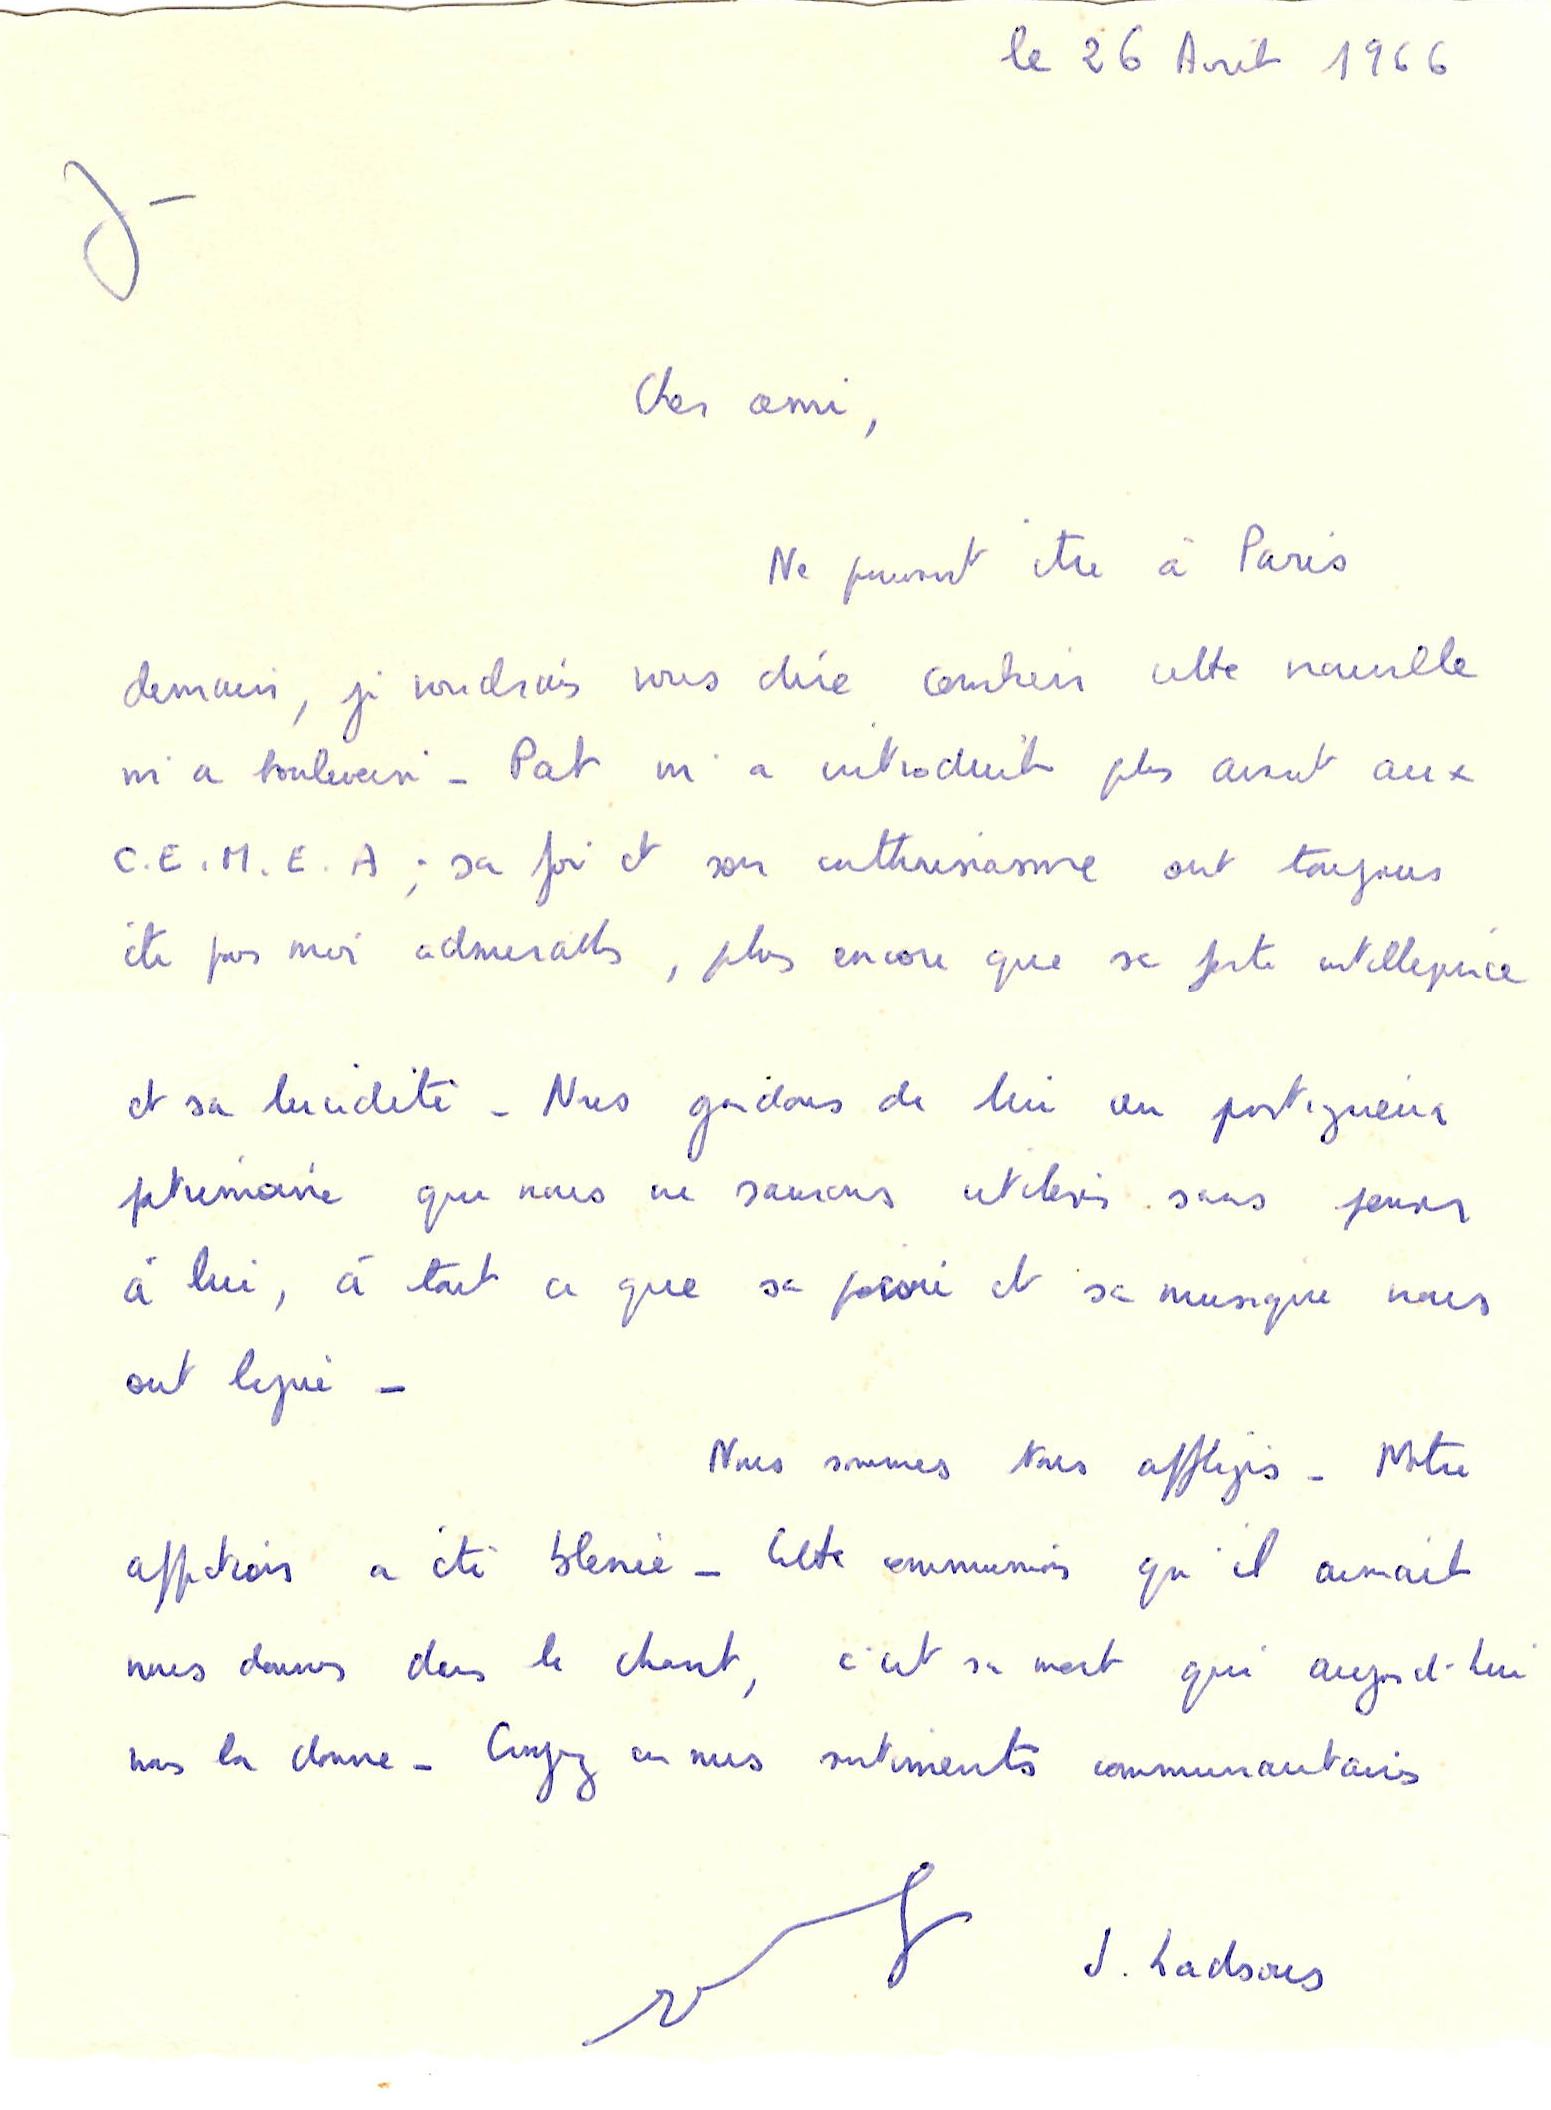 le 26 Avril 1966
J-
Cher ami,
Ne pouvant être à Paris
demain, je voudrais vous dire combien cette nouvelle
m'a bouleversé - Pat m'a introduit plus avant aux
C.E.M.E.A ; sa foi et son enthousiasme ont toujours
été pour moi admirables, plus encore que sa forte intelligence
et sa lucidité - Nous gardons de lui un prestigieux
patrimoine que nous ne saurons utiliser sans penser
à lui, à tout ce que sa poésie et sa musique nous
ont légué -
Nous sommes tous affligés - Notre
affection a été blessée - Cette communion qu'il aimait
nous donner dans le chant, c'est sa mort qui aujourd'hui
nous la donne - Croyez en nos sentiments communautaires
J. Ladsous